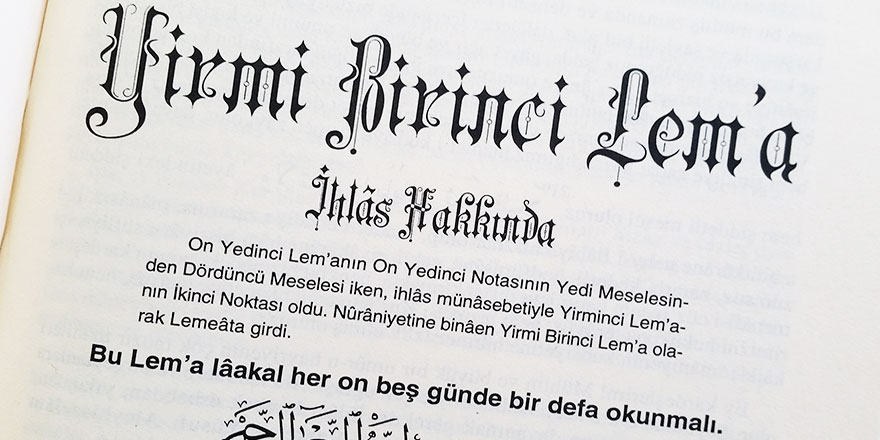 Yirmi Birinci Lem'a
İhlâs Hakkında
On Yedinci Lem'anın On Yedinci Notasının Yedi Meselesin-
den Dördüncü Meselesi iken, ihlâs münâsebetiyle Yirminci Lem'a-
nın İkinci Noktası oldu. Nûrâniyetine binâen Yirmi Birinci Lem'a ola-
rak Lemeâta girdi.
Bu Lem'a lâakal her on beş günde bir defa okunmalı.